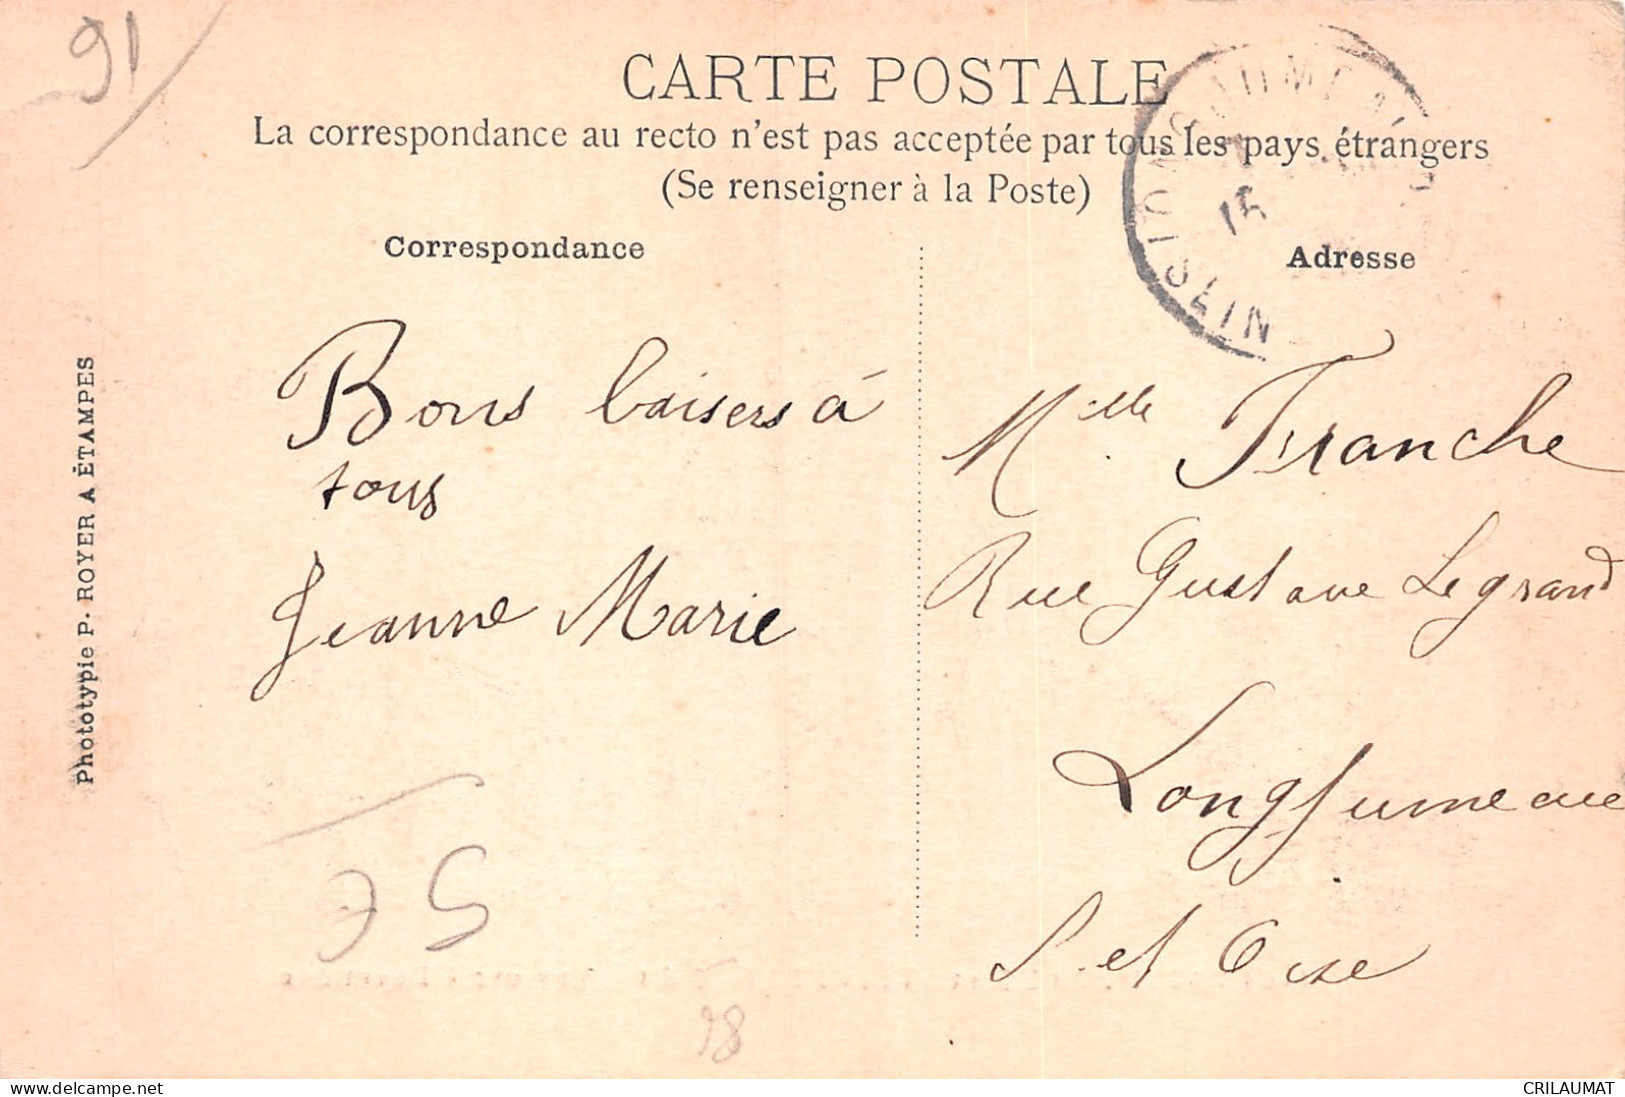 91
CARTE POSTALE
La correspondance au recto n'est pas acceptée par tous les pays étrangers
(Se renseigner à la Poste)
Correspondance
Adresse
Bons baisers à
tous
Jeanne Marie
Mlle Franche
Rue Gustave Legrand
Longjumeau
S. et Oise
Phototypie P. ROYER A ÉTAMPES
15
98
www.delcampe.net
CRILAUMAT